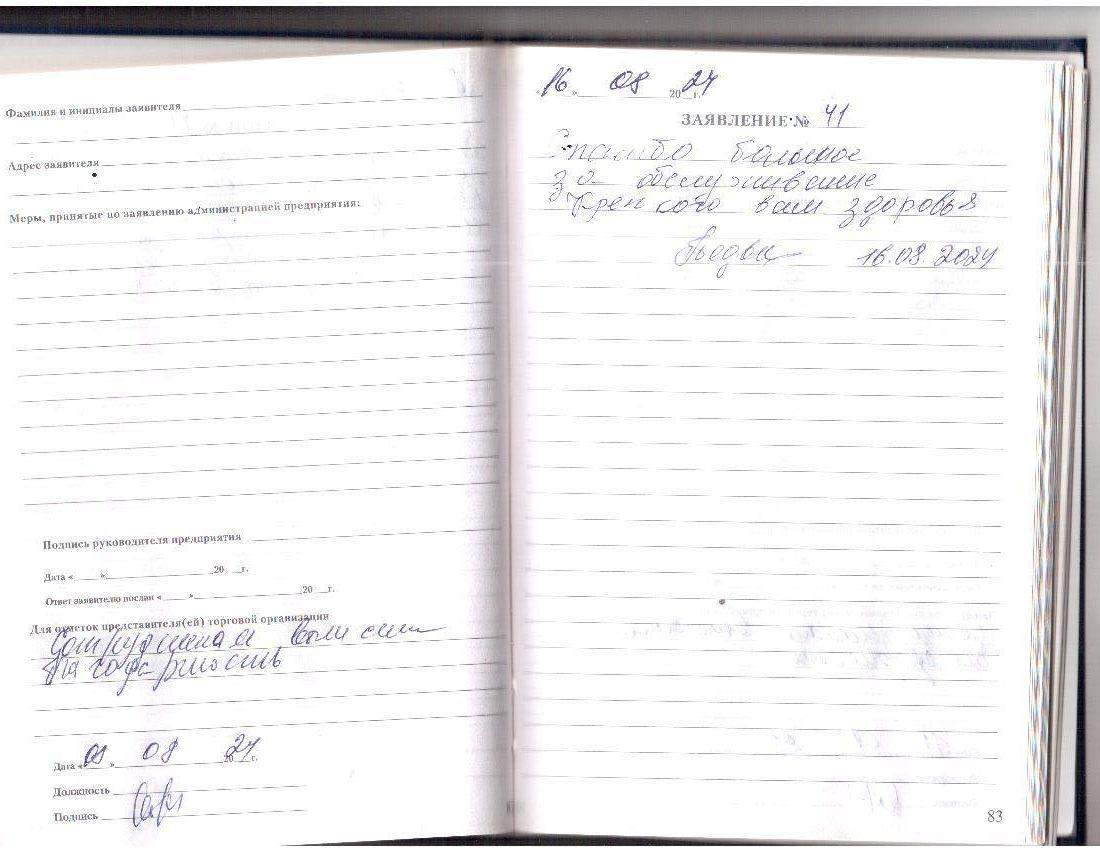 Фамилия и инициалы заявителя
Адрес заявителя
Меры, принятые по заявлению администрацией предприятия:
Подпись руководителя предприятия
Дата « » 20 г.
Ответ заявителю послан « » 20 г.
Для отметок представителя(ей) торговой организации
Сотрудникам вынесли
благодарность
Дата « » 08 2024 г.
Должность
Подпись
16 » 08 2024 г.
ЗАЯВЛЕНИЕ № 41
Спасибо большое
за обслуживание
Крепкого вам здоровья
16.08.2024
83